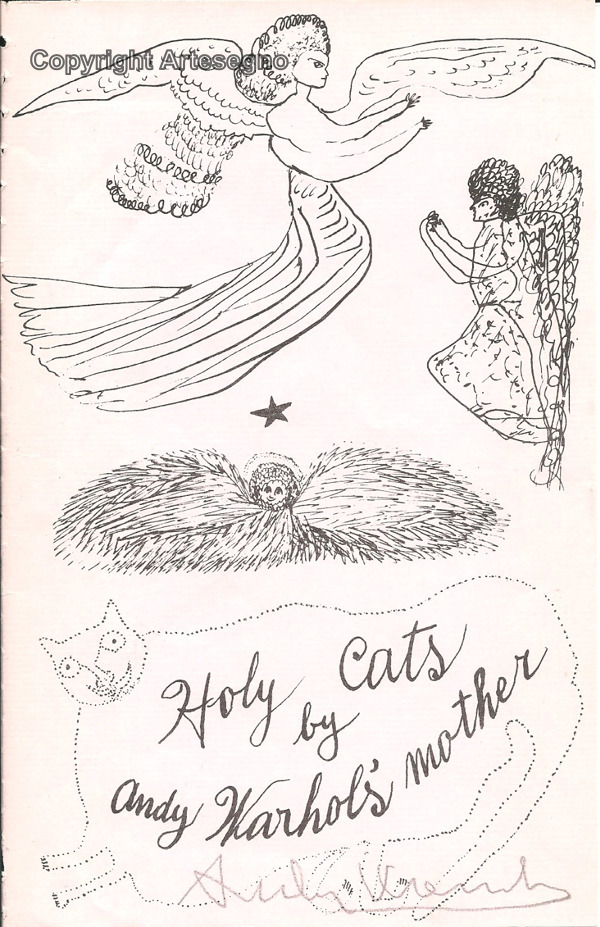 Copyright Artesegno
Holy Cats
by
andy Warhol's mother